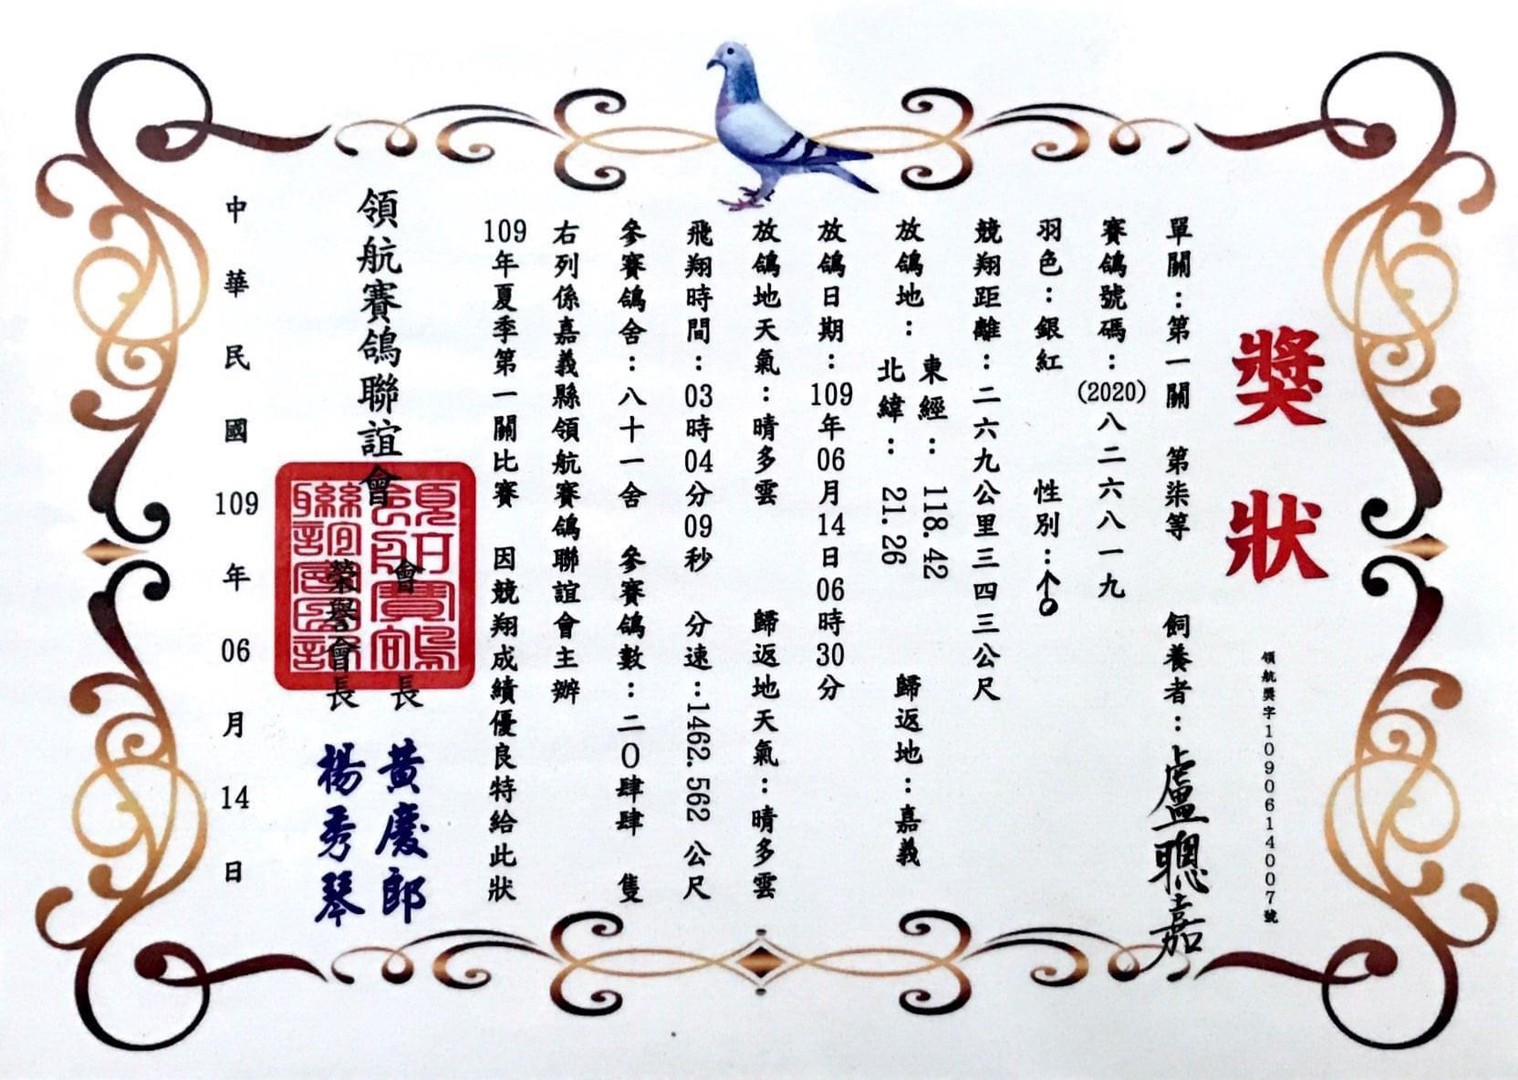 獎狀
領航獎字1090614007號
單關：第一關 第柒等 飼養者：盧聰嘉
賽鴿號碼：(2020)八二六八一九
羽色：銀紅 性別：♂
競翔距離：二六九公里三四三公尺
放鴿地： 東經：118.42 北緯：21.26 歸返地：嘉義
放鴿日期：109年06月14日06時30分
放鴿地天氣：晴多雲 歸返地天氣：晴多雲
飛翔時間：03時04分09秒 分速：1462.562 公尺
參賽鴿舍：八十一舍 參賽鴿數：二0肆肆 隻
右列係嘉義縣領航賽鴿聯誼會主辦
109年夏季第一關比賽 因競翔成績優良特給此狀
領航賽鴿聯誼會
會長 黃慶郎
榮譽會長 楊秀琴
中華民國109年06月14日